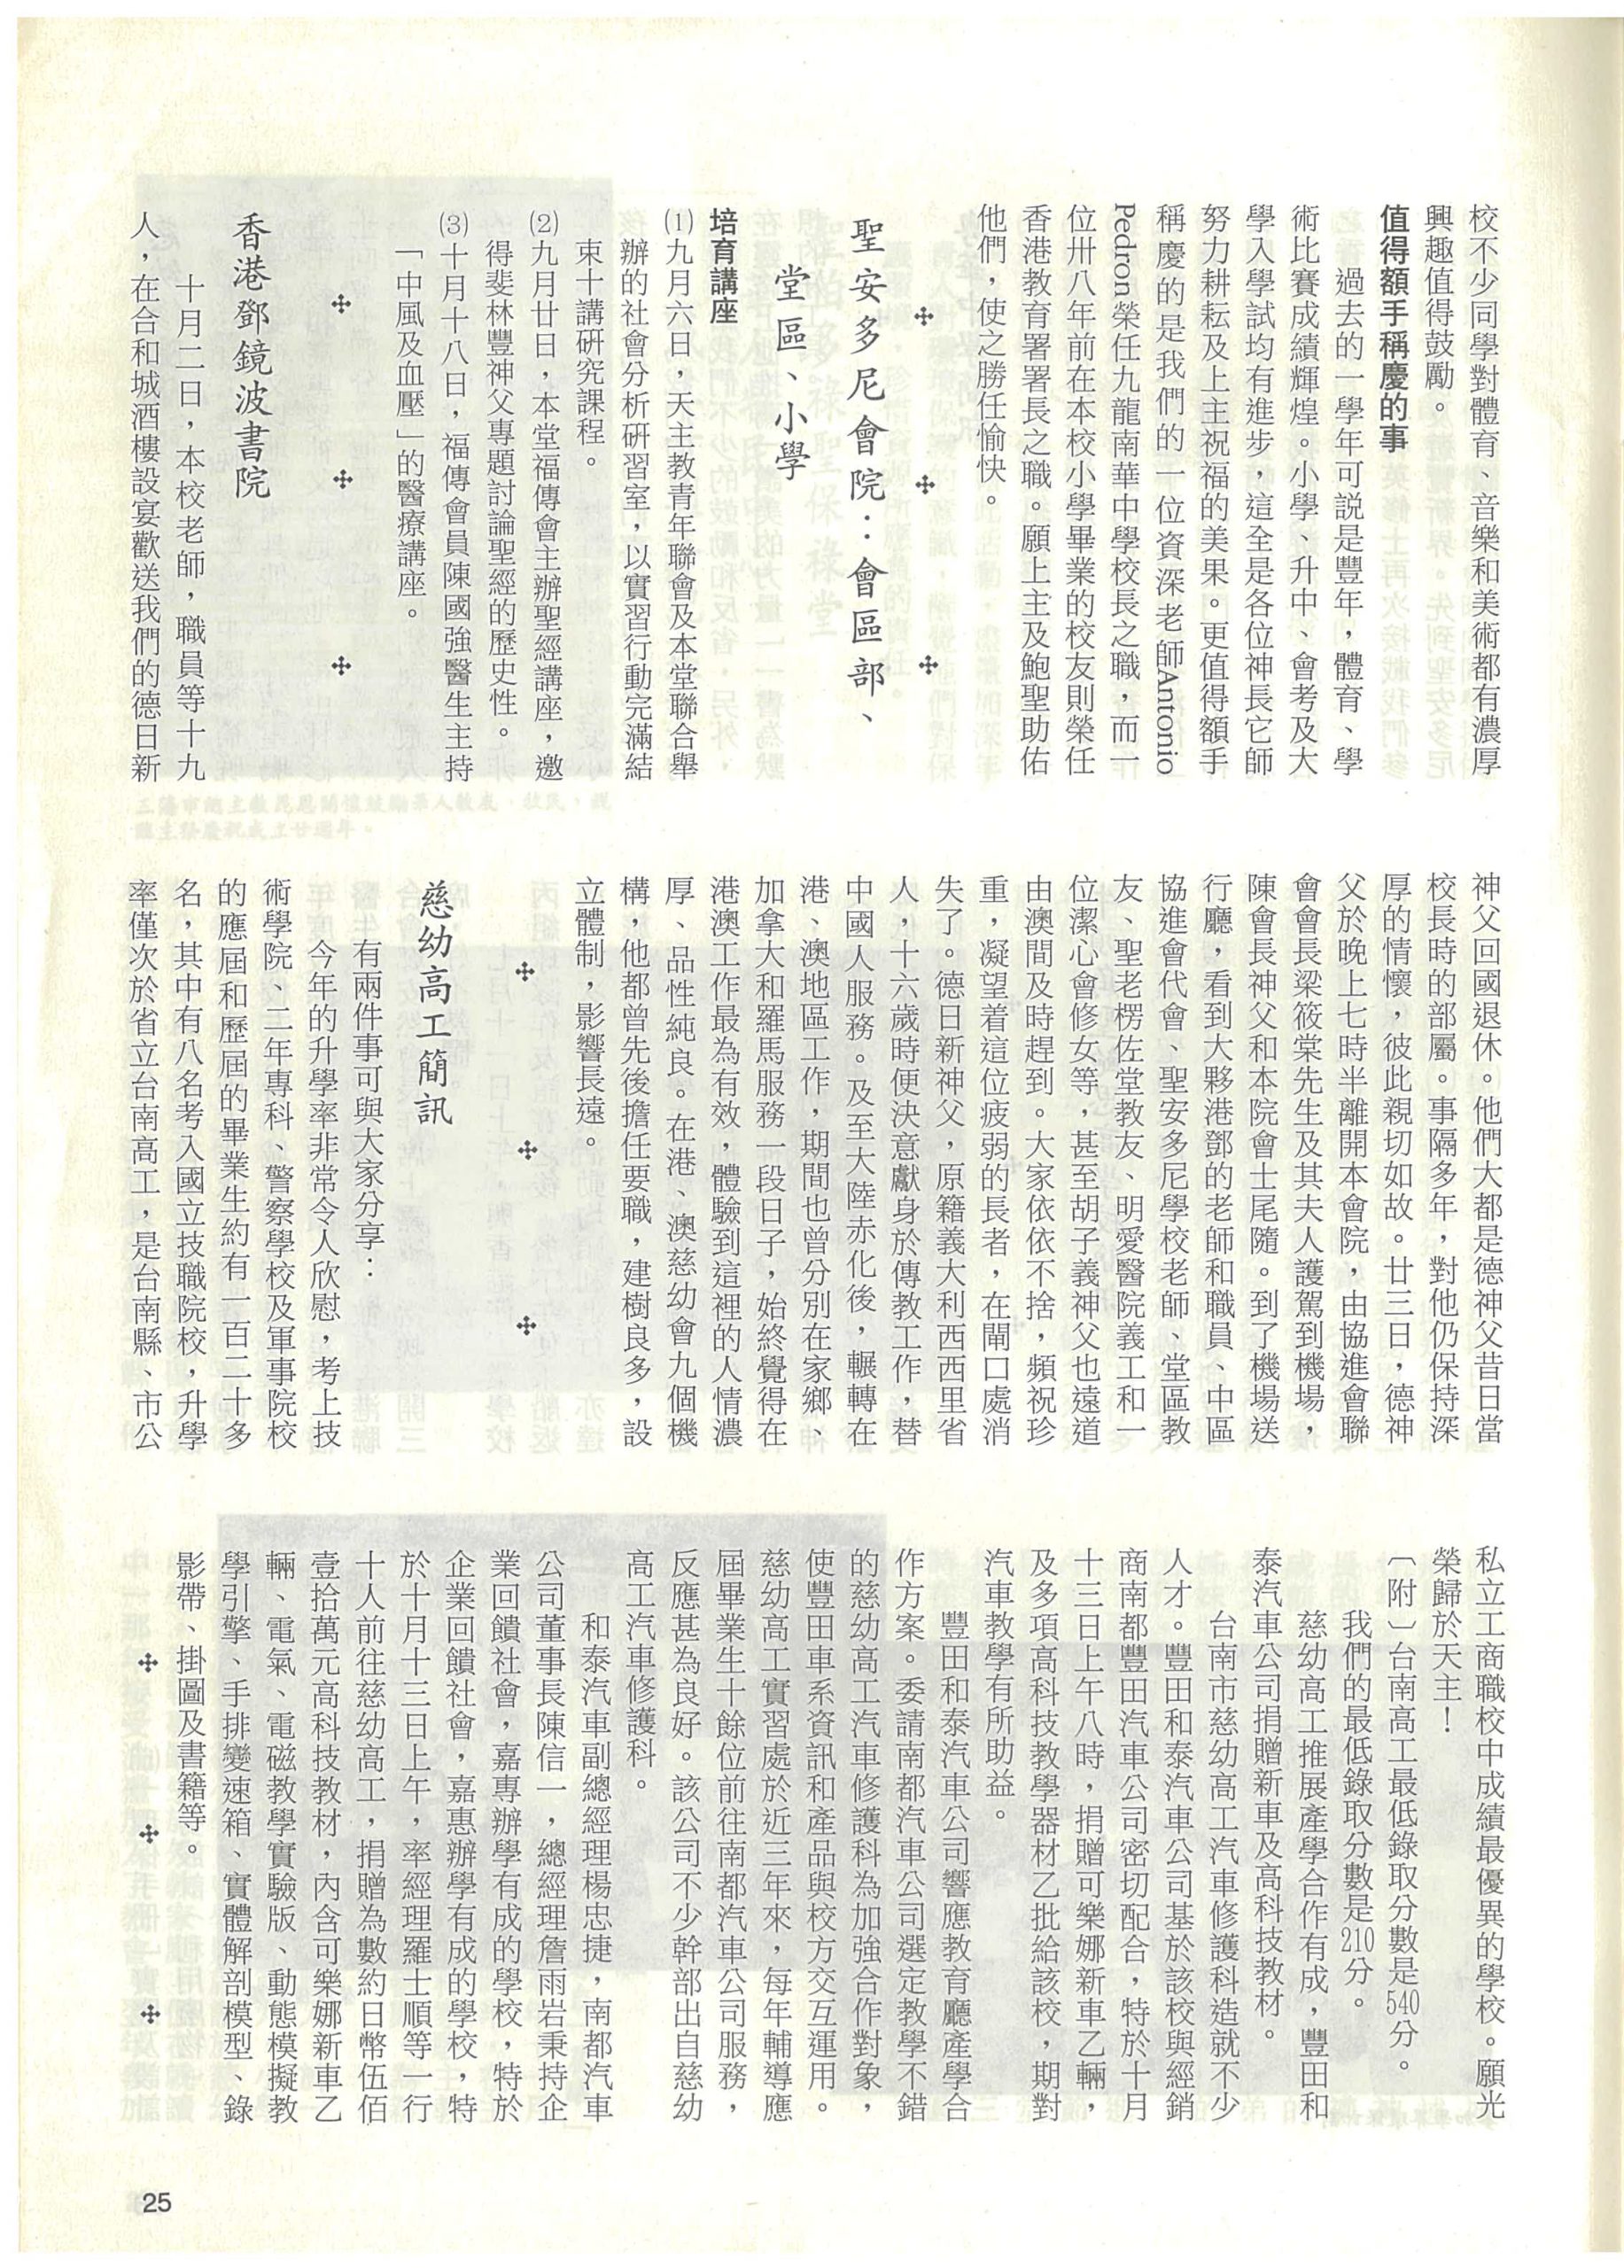 校不少同學對體育、音樂和美術都有濃厚
興趣值得鼓勵。
值得額手稱慶的事
過去的一學年可説是豐年，體育、學
術比賽成績輝煌。小學、升中、會考及大
學入學試均有進步，這全是各位神長它師
努力耕耘及上主祝福的美果。更值得額手
稱慶的是我們的一位資深老師Antonio
Pedron榮任九龍南華中學校長之職，而一
位卅八年前在本校小學畢業的校友則榮任
香港教育署署長之職。願上主及鮑聖助佑
他們，使之勝任愉快。
✣ ✣ ✣
聖安多尼會院：會區部、
堂區、小學
培育講座
⑴九月六日，天主教青年聯會及本堂聯合舉
辦的社會分析研習室，以實習行動完滿結
束十講研究課程。
⑵九月廿日，本堂福傳會主辦聖經講座，邀
得斐林豐神父專題討論聖經的歷史性。
⑶十月十八日，福傳會員陳國強醫生主持
「中風及血壓」的醫療講座。
✣ ✣ ✣
香港鄧鏡波書院
十月二日，本校老師，職員等十九
人，在合和城酒樓設宴歡送我們的德日新
神父回國退休。他們大都是德神父昔日當
校長時的部屬。事隔多年，對他仍保持深
厚的情懷，彼此親切如故。廿三日，德神
父於晚上七時半離開本會院，由協進會聯
會會長梁筱棠先生及其夫人護駕到機場，
陳會長神父和本院會士尾隨。到了機場送
行廳，看到大夥港鄧的老師和職員、中區
協進會代會、聖安多尼學校老師、堂區教
友、聖老楞佐堂教友、明愛醫院義工和一
位潔心會修女等，甚至胡子義神父也遠道
由澳間及時趕到。大家依依不捨，頻祝珍
重，凝望着這位疲弱的長者，在閘口處消
失了。德日新神父，原籍義大利西西里省
人，十六歲時便決意獻身於傳教工作，替
中國人服務。及至大陸赤化後，輾轉在
港、澳地區工作，期間也曾分別在家鄉、
加拿大和羅馬服務一段日子，始終覺得在
港澳工作最為有效，體驗到這裡的人情濃
厚、品性純良。在港、澳慈幼會九個機
構，他都曾先後擔任要職，建樹良多，設
立體制，影響長遠。
✣ ✣ ✣
慈幼高工簡訊
有兩件事可與大家分享：
今年的升學率非常令人欣慰，考上技
術學院、二年專科、警察學校及軍事院校
的應屆和歷屆的畢業生約有一百二十多
名，其中有八名考入國立技職院校，升學
率僅次於省立台南高工，是台南縣、市公
私立工商職校中成績最優異的學校。願光
榮歸於天主！
〔附〕台南高工最低錄取分數是540分。
我們的最低錄取分數是210分。
慈幼高工推展產學合作有成，豐田和
泰汽車公司捐贈新車及高科技教材。
台南市慈幼高工汽車修護科造就不少
人才。豐田和泰汽車公司基於該校與經銷
商南都豐田汽車公司密切配合，特於十月
十三日上午八時，捐贈可樂娜新車乙輛，
及多項高科技教學器材乙批給該校，期對
汽車教學有所助益。
豐田和泰汽車公司響應教育廳產學合
作方案。委請南都汽車公司選定教學不錯
的慈幼高工汽車修護科為加強合作對象，
使豐田車系資訊和產品與校方交互運用。
慈幼高工實習處於近三年來，每年輔導應
屆畢業生十餘位前往南都汽車公司服務，
反應甚為良好。該公司不少幹部出自慈幼
高工汽車修護科。
和泰汽車副總經理楊忠捷，南都汽車
公司董事長陳信一，總經理詹雨岩秉持企
業回饋社會，嘉專辦學有成的學校，特於
企業回饋社會，嘉惠辦學有成的學校，特
於十月十三日上午，率經理羅士順等一行
十人前往慈幼高工，捐贈為數約日幣伍佰
壹拾萬元高科技教材，內含可樂娜新車乙
輛、電氣、電磁教學實驗版、動態模擬教
學引擎、手排變速箱、實體解剖模型、錄
影帶、掛圖及書籍等。
✣ ✣ ✣
25